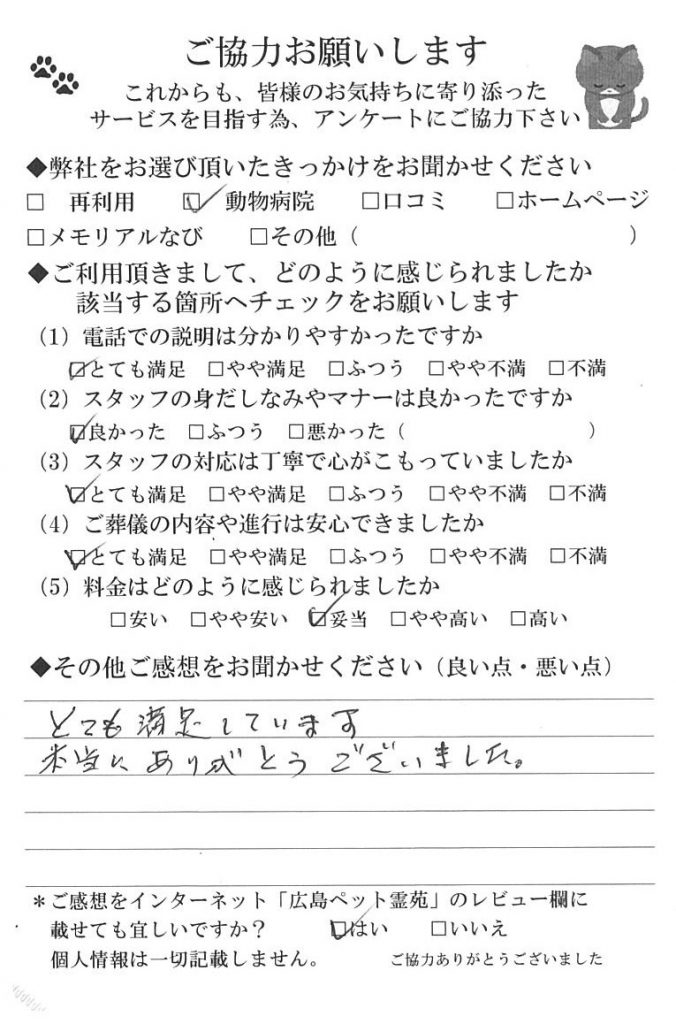 ご協力お願いします
これからも、皆様のお気持ちに寄り添った
サービスを目指す為、アンケートにご協力下さい
◆弊社をお選び頂いたきっかけをお聞かせください
□ 再利用 ☑ 動物病院 □口コミ □ホームページ
□メモリアルなび □その他（ ）
◆ご利用頂きまして、どのように感じられましたか
該当する箇所へチェックをお願いします
（1）電話での説明は分かりやすかったですか
☑とても満足 □やや満足 □ふつう □やや不満 □不満
（2）スタッフの身だしなみやマナーは良かったですか
☑良かった □ふつう □悪かった（ ）
（3）スタッフの対応は丁寧で心がこもっていましたか
☑とても満足 □やや満足 □ふつう □やや不満 □不満
（4）ご葬儀の内容や進行は安心できましたか
☑とても満足 □やや満足 □ふつう □やや不満 □不満
（5）料金はどのように感じられましたか
□安い □やや安い ☑妥当 □やや高い □高い
◆その他ご感想をお聞かせください（良い点・悪い点）
とても満足しています
本当にありがとうございました。
＊ご感想をインターネット「広島ペット霊苑」のレビュー欄に
載せても宜しいですか？ ☑はい □いいえ
個人情報は一切記載しません。 ご協力ありがとうございました